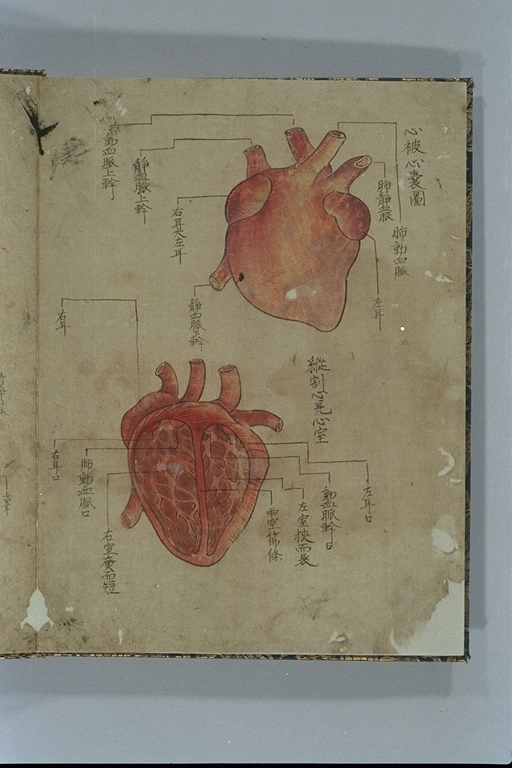 心被心囊圖
肺動血脈
肺靜血脈
左耳
動血脈上幹
靜血脈上幹
右耳大左耳
靜血脈下幹
縱割心見心室
右耳
左耳口
動血脈幹口
左室狹而長
兩室節條
右室廣而短
肺動血脈口
右耳口